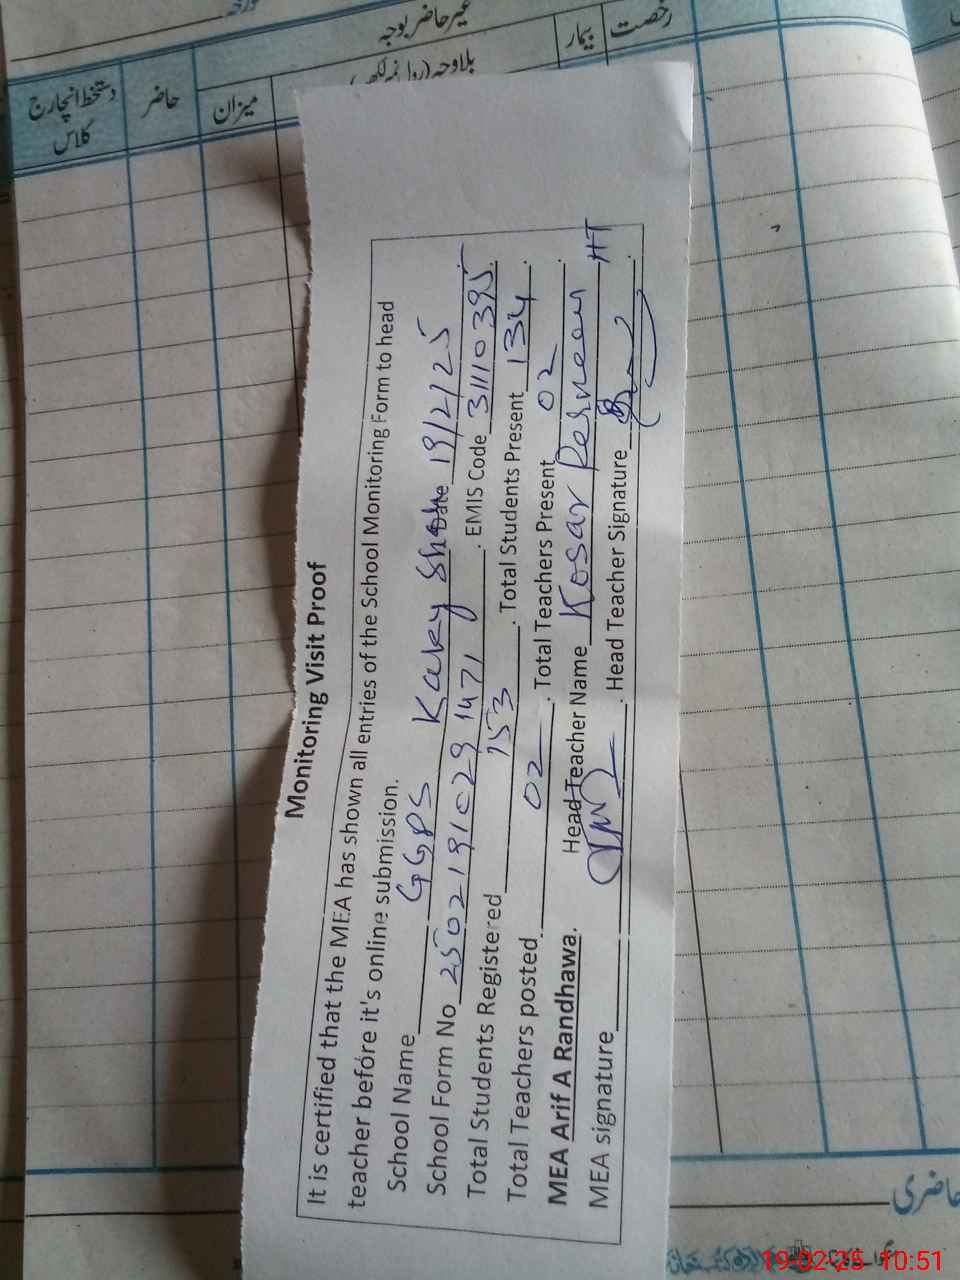 غیر حاضر بوجہ
رخصت
بیمار
بلاوجہ
میزان
حاضر
دستخط انچارج
کلاس
Monitoring Visit Proof
It is certified that the MEA has shown all entries of the School Monitoring Form to head
teacher before it's online submission.
School Name GGPS Kakey Date 19/2/25
School Form No 25021910291471. EMIS Code 31110395.
Total Students Registered 153. Total Students Present 134.
Total Teachers posted 02. Total Teachers Present 02.
MEA Arif A Randhawa. Head Teacher Name Kosar Perveen HT
MEA signature. Head Teacher Signature.
حاضری
19-02-25 10:51